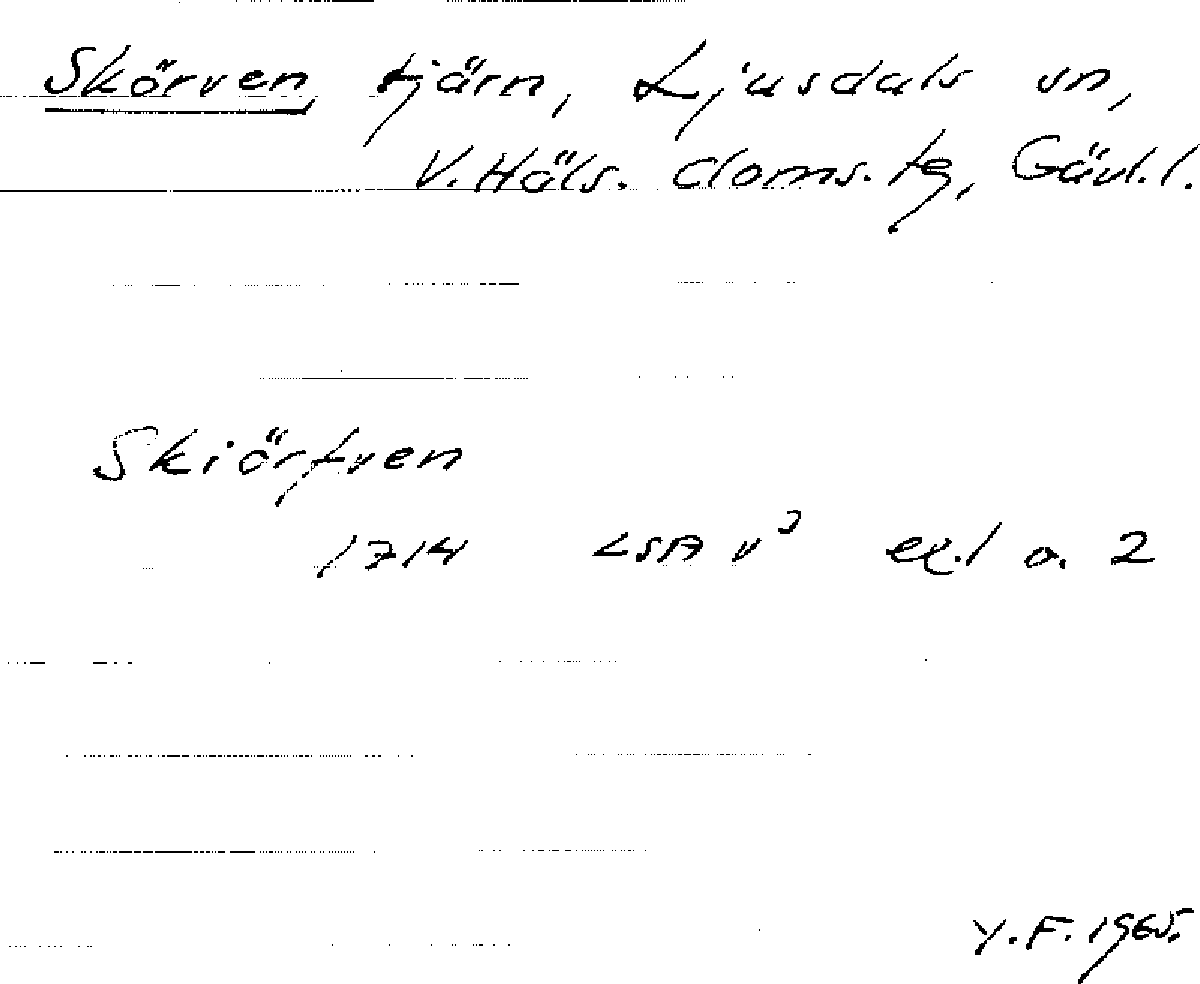 Skörven, tjärn, Ljusdals sn,
V. Häls. doms. tg, Gävl. l.
Skiörfven
1714 LSA v³ ex. 1 o. 2
Y. F. 1965.